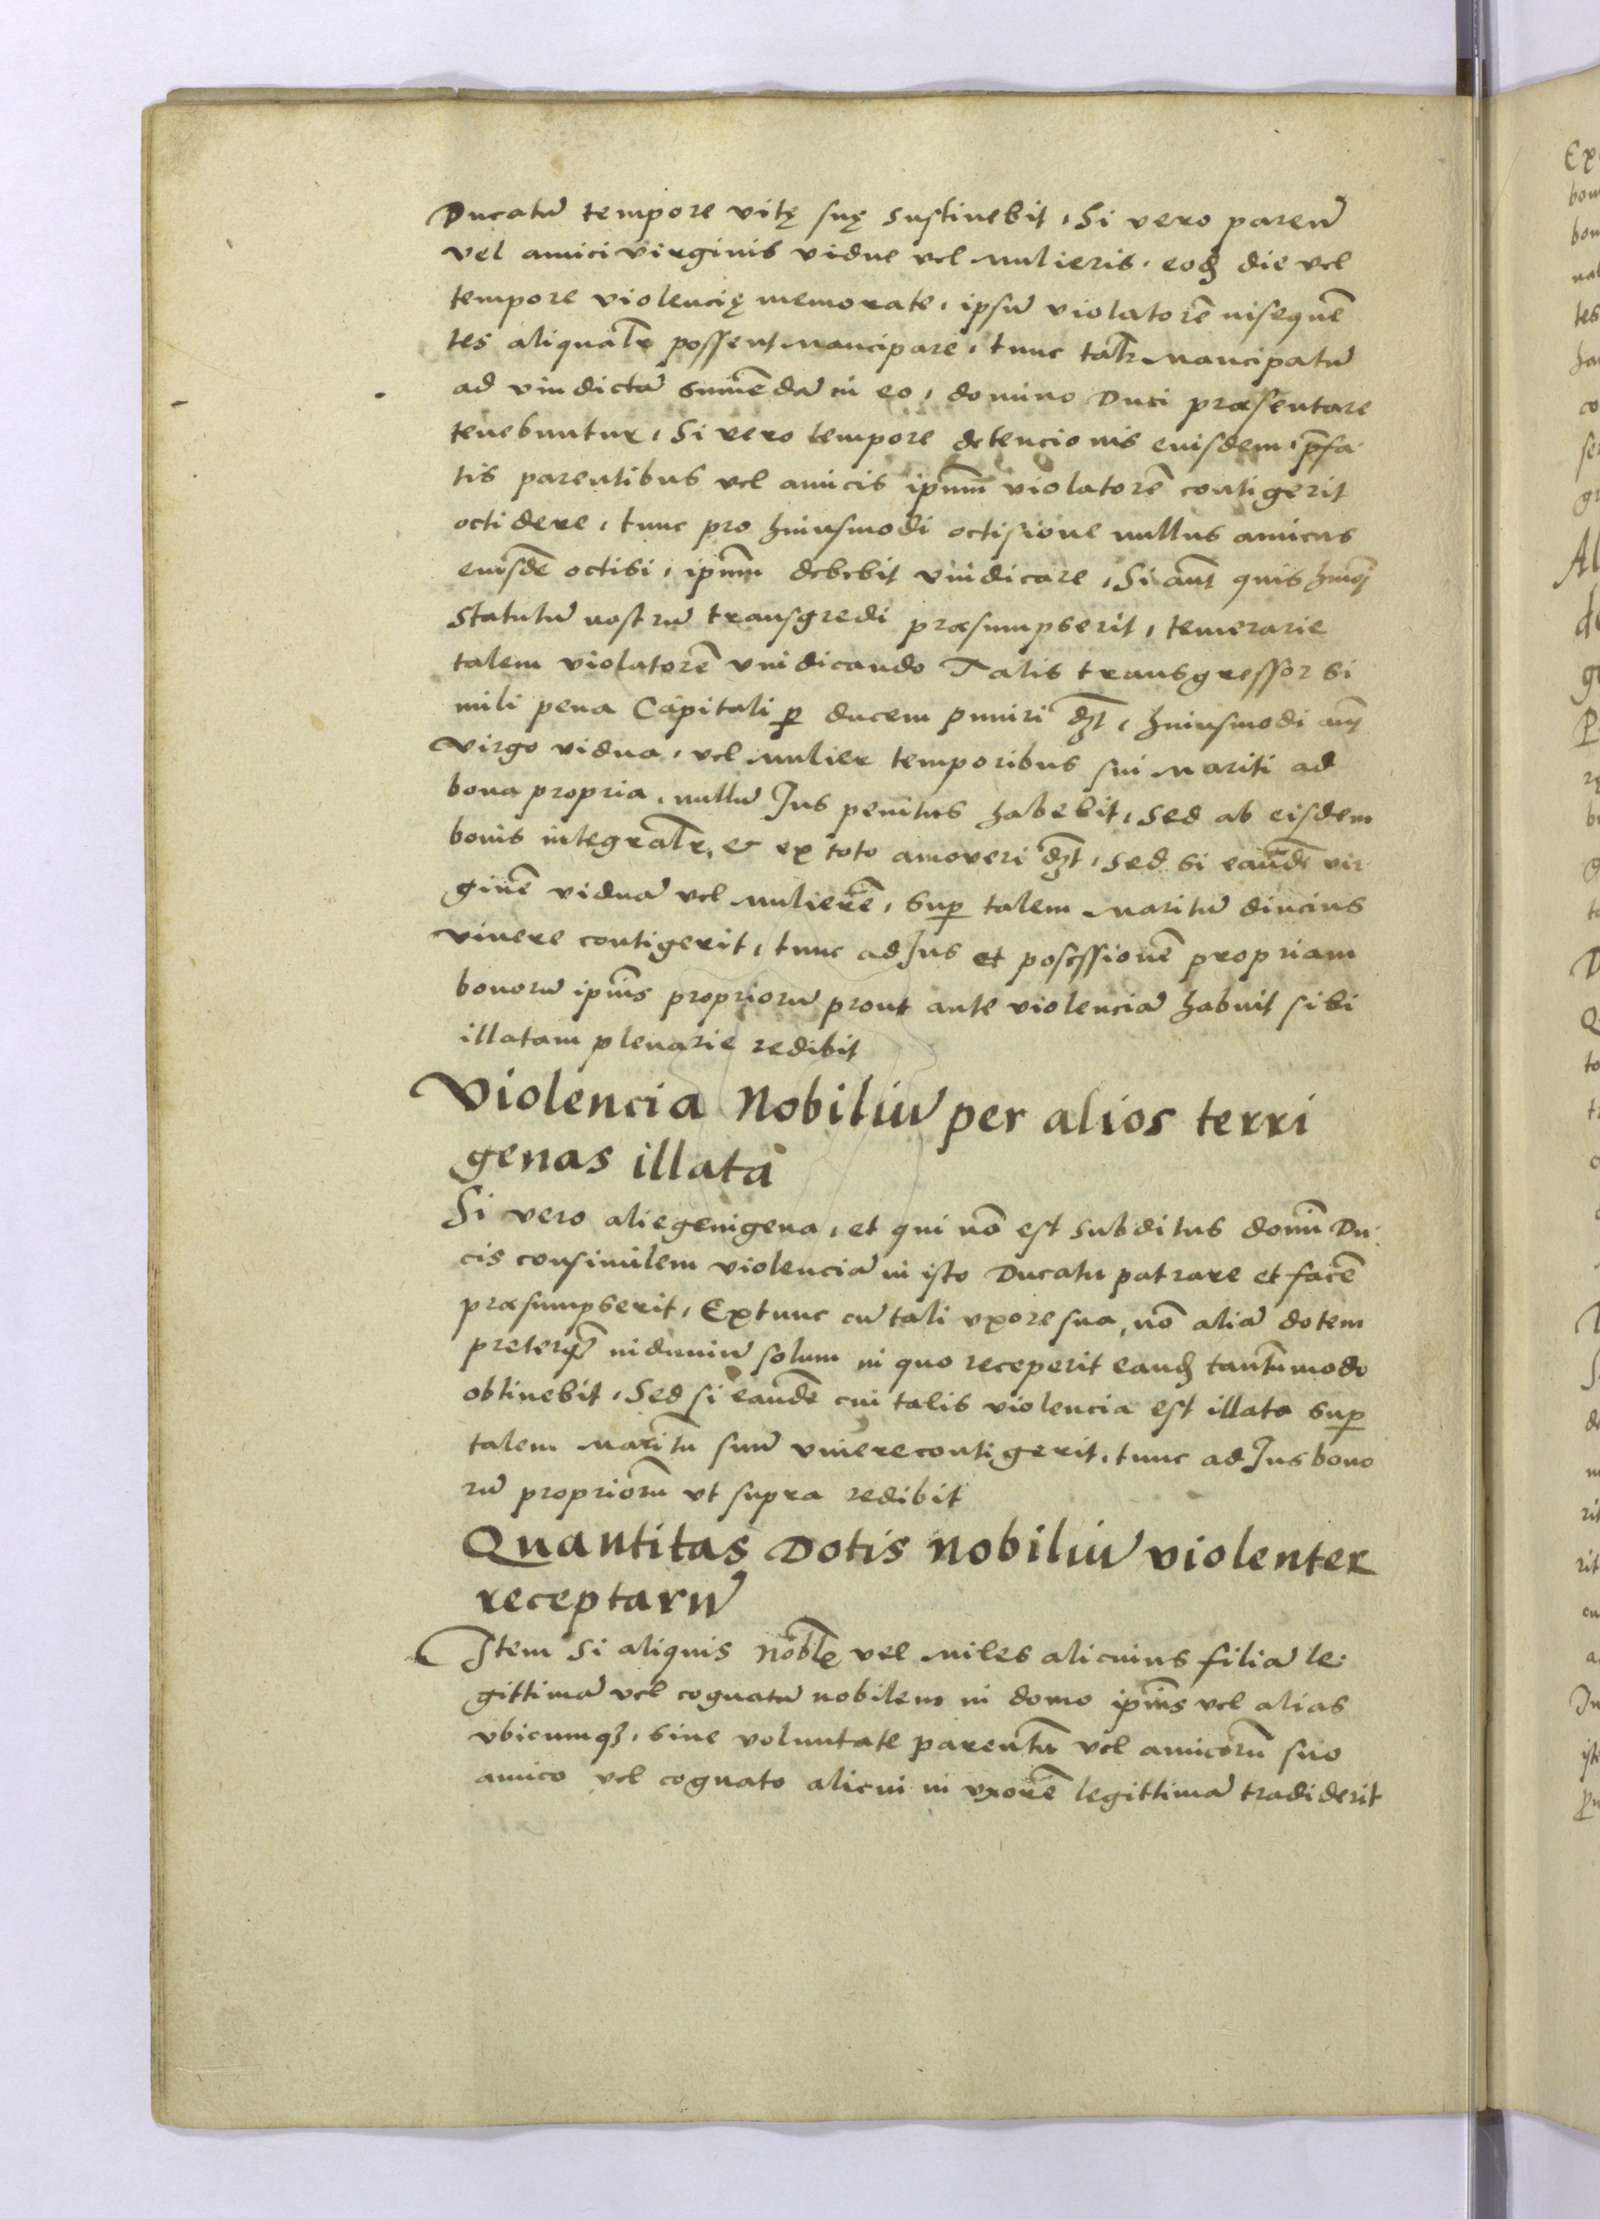 Ducatũ tempore vitę suę sustinebit, Si vero parenˀ
vel amici virginis vidue vel mulieris, eodꝫ die vel
tempore violencię memorate, ipsũ violatorẽ insequẽ
tes aliqualr̃ possent mancipare, tunc talr̃ mancipatũ
ad vindictã sumẽdã in eo, domino Duci præsentare
tenebuntur, Si vero tempore detencionis eiusdem, p̃fa
tis parentibus vel amicis ipm̃ violatorẽ contigerit
occidere, tunc pro huiusmodi occisione nullus amicus
eiusdẽ occisi, ipm̃ debebit vindicare, Si aut̃ quis hmo̊j
Statutũ nostrũ transgredi præsumpserit, temerarie
talem violatorẽ vindicando Talis transgressor si
mili pena Capitali ꝑ ducem puniri dꝫt, huiusmodi aut̃
Virgo vidua, vel mulier temporibus sui mariti ad
bona propria, nullũ Jus penitus habebit, Sed ab eisdem
bonis integralr̃, & ex toto amoveri dꝫt, Sed si eandẽ vir
ginẽ viduã vel mulierẽ, Suꝑ talem maritũ diucius
vivere contigerit, tunc ad Jus et posessionẽ propriam
bonorũ ipius propriorũ prout ante violenciã habuit sibi
illatam plenarie redibit
Violencia Nobiliũ per alios terri
genas illata
Si vero aliegenigena, et qui nõ est subditus domĩ Du
cis consimilem violenciã in isto Ducatu patrare et facẽ
præsumpserit, Extunc cũ tali vxore sua, nõ aliã dotem
preterq̃ indumũ solum in quo receperit eandꝫ tantũmodo
obtinebit, Sed si eandẽ cui talis violencia est illata suꝑ
talem maritũ suũ vivere contigerit, tunc ad Jus bono
rũ propriorũ vt supra redibit
Quantitas Dotis nobiliũ violenter
receptarũ
Item Si aliquis Nobľe vel miles alicuius filiã le
gittimã vel cognatã nobilem in domo ipius vel alias
vbicumqꝫ, sine voluntate parentũ vel amicorũ suo
amico vel cognato alicui in vxorẽ legittimã tradiderit